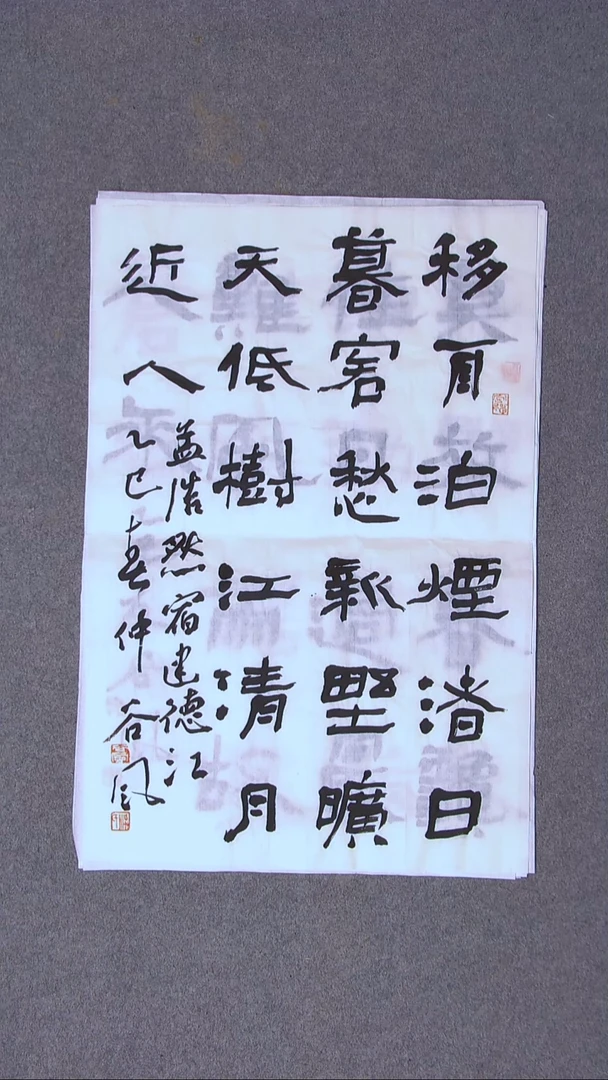 移舟泊煙渚日
暮客愁新野曠
天低樹江清月
近人
孟浩然宿建德江
乙巳春仲谷风